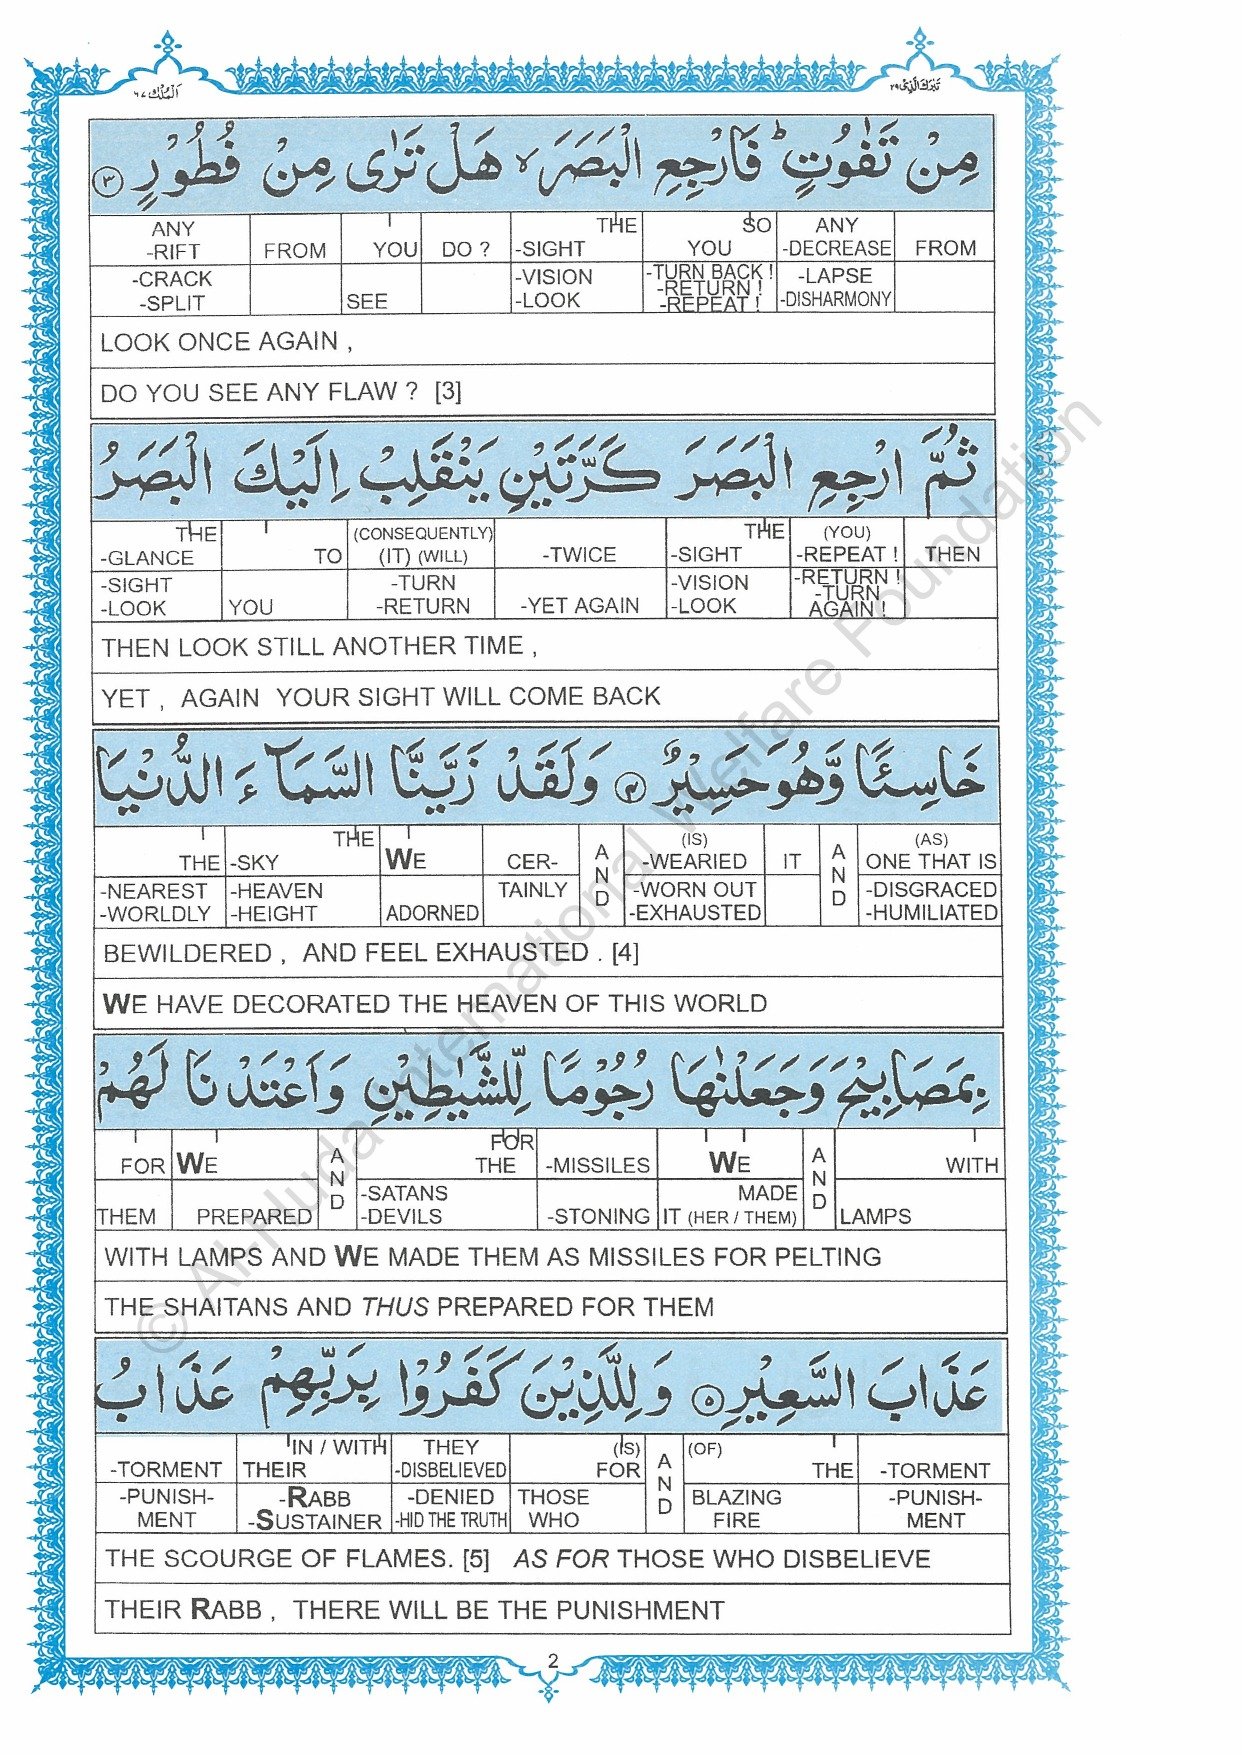 اَلْمُلْك ٦٧ تَبٰرَكَ الَّذِىْ ٢٩
مِنْ تَفٰوُتٍ ؕ فَارْجِعِ الْبَصَرَ ۙ هَلْ تَرٰى مِنْ فُطُوْرٍ ﴿٣﴾
ANY THE SO ANY
-RIFT FROM YOU DO ? -SIGHT YOU -DECREASE FROM
-CRACK -VISION -TURN BACK ! -LAPSE
-SPLIT SEE -LOOK -RETURN ! -DISHARMONY
-REPEAT !
LOOK ONCE AGAIN ,
DO YOU SEE ANY FLAW ? [3]
ثُمَّ ارْجِعِ الْبَصَرَ كَرَّتَيْنِ يَنْقَلِبْ اِلَيْكَ الْبَصَرُ
THE (CONSEQUENTLY) THE (YOU)
-GLANCE TO (IT) (WILL) -TWICE -SIGHT -REPEAT ! THEN
-SIGHT -TURN -VISION -RETURN !
-LOOK YOU -RETURN -YET AGAIN -LOOK -TURN
AGAIN !
THEN LOOK STILL ANOTHER TIME ,
YET , AGAIN YOUR SIGHT WILL COME BACK
خَاسِئًا وَّهُوَ حَسِيْرٌ ﴿٤﴾ وَلَقَدْ زَيَّنَّا السَّمَآءَ الدُّنْيَا
THE WE AND (IS) AND (AS)
THE -SKY CER- -WEARIED IT ONE THAT IS
-NEAREST -HEAVEN TAINLY -WORN OUT -DISGRACED
-WORLDLY -HEIGHT ADORNED -EXHAUSTED -HUMILIATED
BEWILDERED , AND FEEL EXHAUSTED . [4]
WE HAVE DECORATED THE HEAVEN OF THIS WORLD
بِمَصَابِيْحَ وَجَعَلْنٰهَا رُجُوْمًا لِّلشَّيٰطِيْنِ وَاَعْتَدْنَا لَهُمْ
FOR
FOR WE AND THE -MISSILES WE AND WITH
-SATANS MADE
THEM PREPARED -DEVILS -STONING IT (HER / THEM) LAMPS
WITH LAMPS AND WE MADE THEM AS MISSILES FOR PELTING
THE SHAITANS AND THUS PREPARED FOR THEM
عَذَابَ السَّعِيْرِ ﴿٥﴾ وَلِلَّذِيْنَ كَفَرُوْا بِرَبِّهِمْ عَذَابُ
IN / WITH THEY (IS) AND (OF)
-TORMENT THEIR -DISBELIEVED FOR THE -TORMENT
-PUNISH- -RABB -DENIED THOSE BLAZING -PUNISH-
MENT -SUSTAINER -HID THE TRUTH WHO FIRE MENT
THE SCOURGE OF FLAMES. [5] AS FOR THOSE WHO DISBELIEVE
THEIR RABB , THERE WILL BE THE PUNISHMENT
2
© Al-Huda International Welfare Foundation